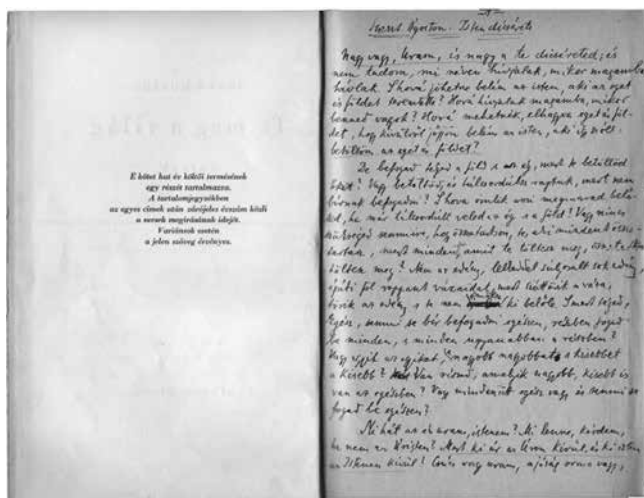 E kötet hat év költői termésének
egy részét tartalmazza.
A tartalomjegyzékben
az egyes címek után zárójeles évszám közli
a versek megírásának idejét.
Variánsok esetén
a jelen szöveg érvényes.
Szent Ágoston: Isten dicsérete
Nagy vagy, Uram, és nagy a te dicséreted; és
nem tudom, mi néven hívjalak, mikor magamba
hívlak. S hová jöhetne belém az isten, aki az eget
és földet teremtette? Hová hívjalak magamba, mikor
benned vagyok? Hová mehetnék, elhagyva eget és föl-
det, hogy kívülről jőjön belém az isten, aki így szólt:
betöltöm az eget s földet?
De befogad téged a föld s az ég, mert te betöltöd
őket? Vagy betöltöd, és túlcsordulsz rajtuk, mert nem
bírnak befogadni? S hova omlik ami megmarad belő-
led, ha már túlcsordult veled az ég s a föld? Vagy nincs
szükséged semmire, hogy összetartson, te, aki mindent össze-
tartasz, mert mindent, amit te töltesz meg,
töltesz meg? Nem az edény, 
 mert
 az edény s te nem ki belőle. S mert téged,
Egész, semmi se bír befogadni egészen, részben fogad
be minden, s minden ugyanabban a részben?
Vagy egyik az egyiket, nagyobb nagyobbat s kisebbet
a kisebb? Van részed, amelyik nagyobb, kisebb is
van az egészben? Vagy mindenütt egész vagy és semmi se
fogad be egészen?
Mi hát az én uram, istenem? Mi lenne, kérdem,
ha nem az Úristen? Mert ki úr az Úron kívül, és ki isten
az Istenen kívül? vagy uram, a jóság orma vagy,